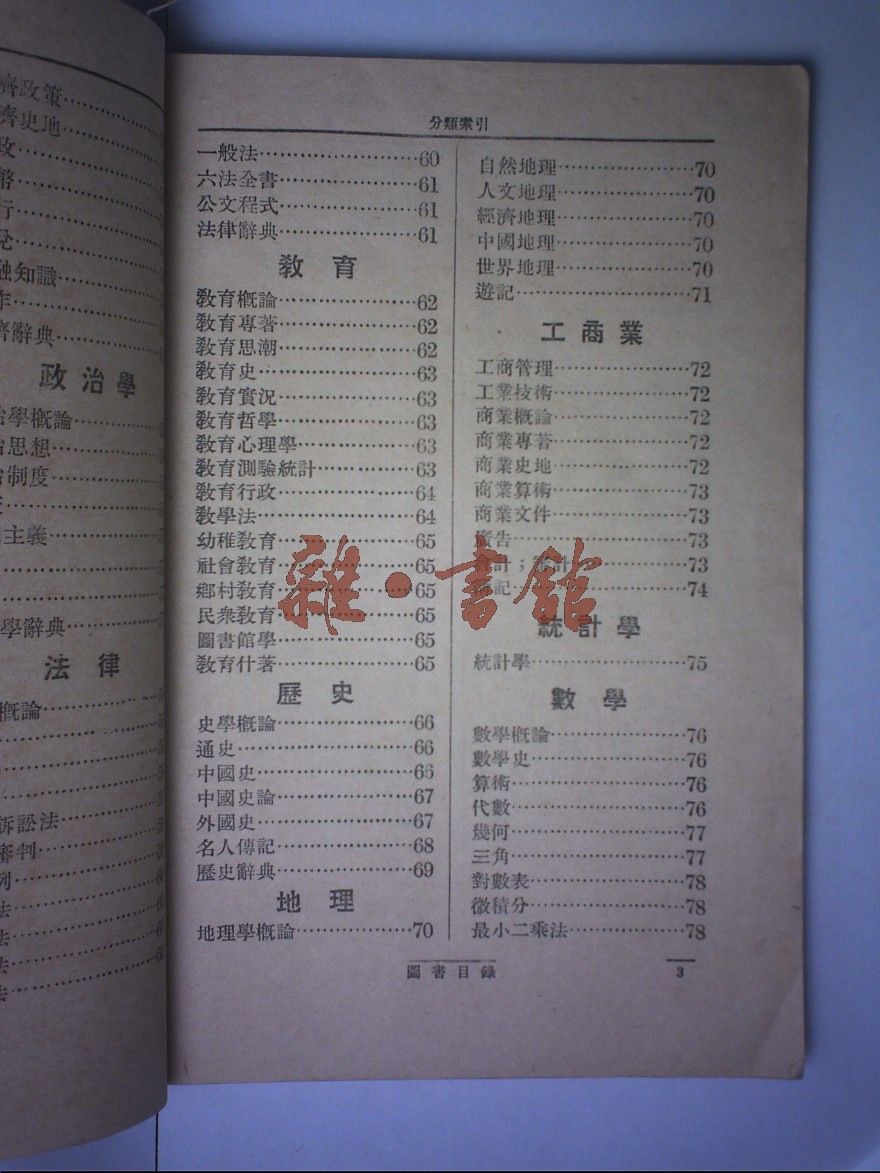 濟政策
濟史地
融知識
濟辭典
政治學
治學概論
治思想
治制度
主義
學辭典
法律
概論
訴訟法
審判
分類索引
一般法……60
六法全書……61
公文程式……61
法律辭典……61
教育
教育概論……62
教育專著……62
教育思潮……62
教育史……63
教育實況……63
教育哲學……63
教育心理學……63
教育測驗統計……63
教育行政……64
教學法……64
幼稚教育……65
社會教育……65
鄉村教育……65
民衆教育……65
圖書館學……65
教育什著……65
歷史
史學概論……66
通史……66
中國史……66
中國史論……67
外國史……67
名人傳記……68
歷史辭典……69
地理
地理學概論……70
自然地理……70
人文地理……70
經濟地理……70
中國地理……70
世界地理……70
遊記……71
工商業
工商管理……72
工業技術……72
商業概論……72
商業專著……72
商業史地……72
商業算術……73
商業文件……73
廣告……73
會計；審計……73
簿記……74
統計學
統計學……75
數學
數學概論……76
數學史……76
算術……76
代數……76
幾何……77
三角……77
對數表……78
微積分……78
最小二乘法……78
圖書目錄
3
雜·書館